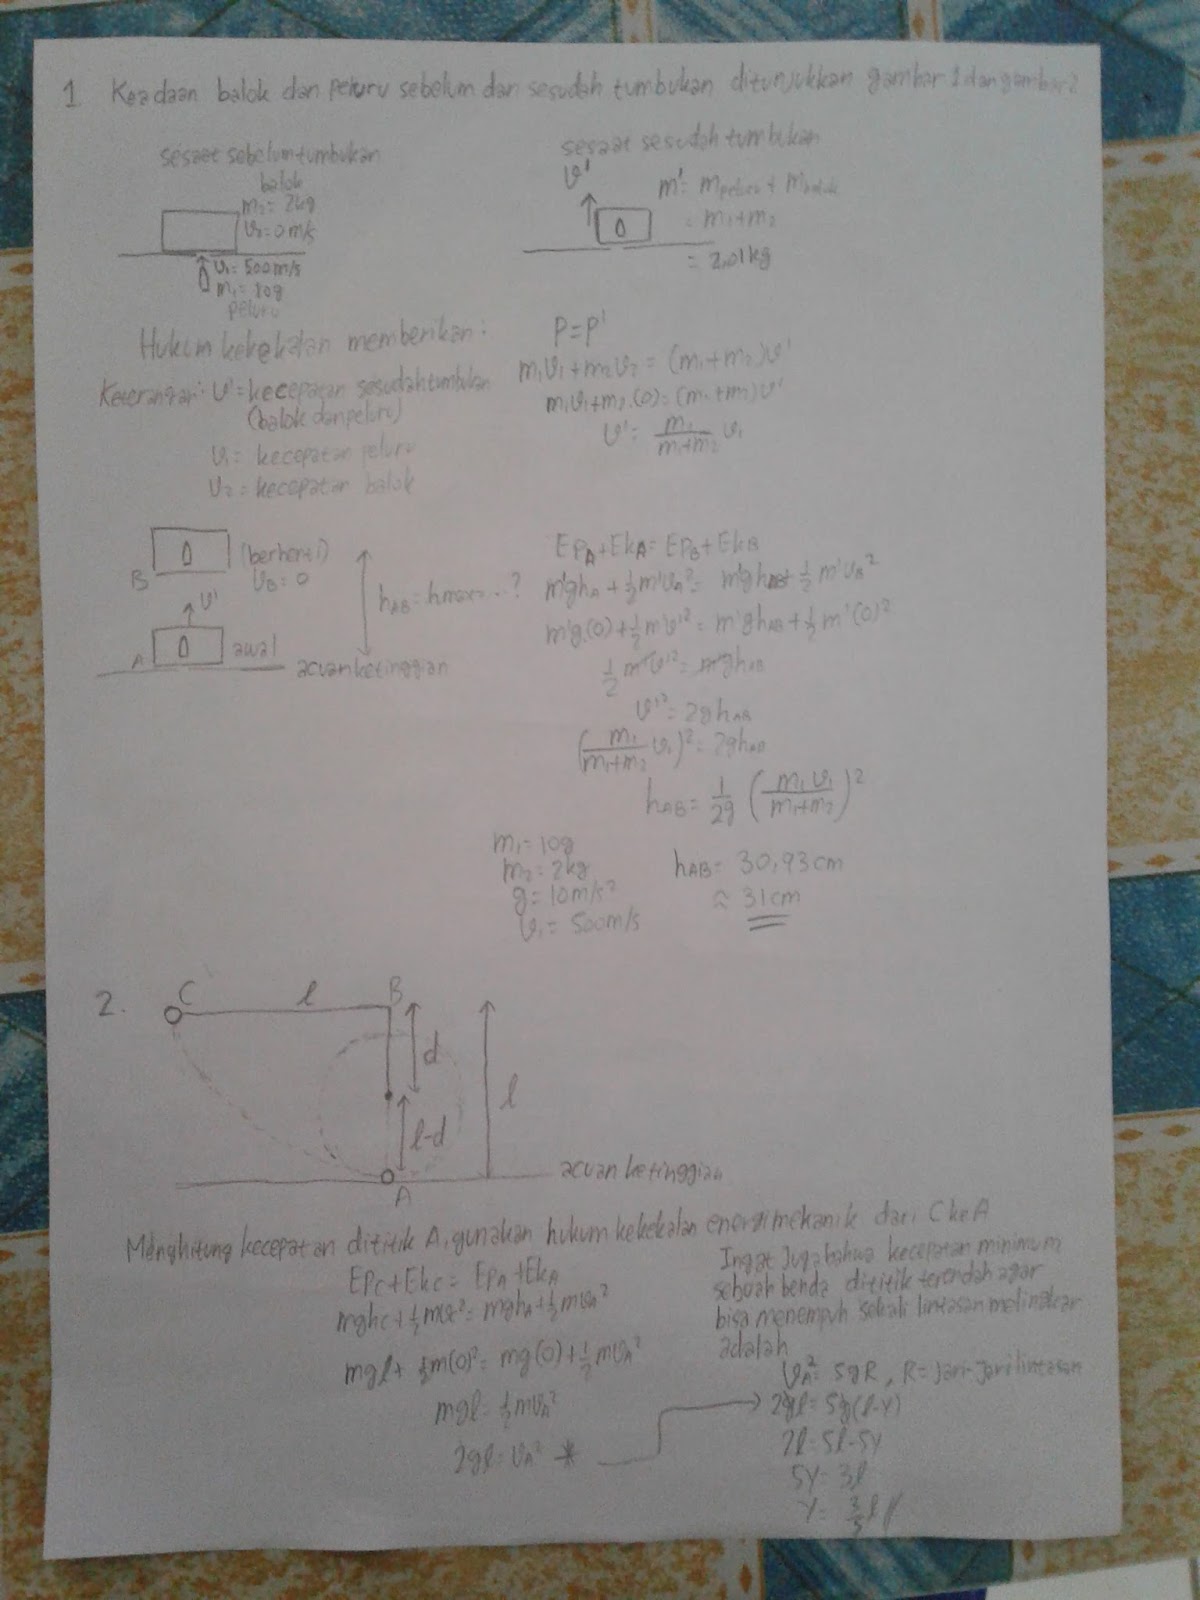 1 Keadaan balok dan peluru sebelum dan sesudah tumbukan ditunjukkan gambar 1 dan gambar 2
sesaat sebelum tumbukan
balok
m₂ = 2kg
v₂ = 0 m/s
v₁ = 500 m/s
m₁ = 10g
peluru
sesaat sesudah tumbukan
v'
m' = m peluru + m balok
= m₁+m₂
= 2,01 kg
Hukum kekekalan memberikan :
P = P'
m₁v₁ + m₂v₂ = (m₁+m₂)v'
m₁v₁ + m₂.(0) = (m₁+m₂)v'
v' = m₁/(m₁+m₂) v₁
Keterangan : v' = kecepatan sesudah tumbukan
(balok dan peluru)
v₁ = kecepatan peluru
v₂ = kecepatan balok
B (berhenti)
v_B = 0
v'
A awal
acuan ketinggian
h_AB = hmax = ...?
Ep_A + Ek_A = Ep_B + Ek_B
m'gh_A + ½ m'v_A² = m'gh_AB + ½ m'v_B²
m'g.(0) + ½ m'v'² = m'gh_AB + ½ m'(0)²
½ m'v'² = m'gh_AB
v'² = 2gh_AB
(m₁/(m₁+m₂) v₁)² = 2gh_AB
h_AB = 1/2g (m₁v₁/(m₁+m₂))²
m₁ = 10g
m₂ = 2kg
g = 10 m/s²
v₁ = 500 m/s
h_AB = 30,93 cm
≈ 31 cm
2.
C l B
d
l-d
l
A
acuan ketinggian
Menghitung kecepatan dititik A, gunakan hukum kekekalan energi mekanik dari C ke A
Ep_C + Ek_C = Ep_A + Ek_A
mgh_C + ½ mv_C² = mgh_A + ½ mv_A²
mgl + ½ m(0)² = mg(0) + ½ mv_A²
mgl = ½ mv_A²
2gl = v_A² *
Ingat juga bahwa kecepatan minimum
sebuah benda dititik terendah agar
bisa menempuh sekali lintasan melingkar
adalah
v_A² = 5gR, R = Jari-jari lintasan
2gl = 5g(l-y)
2l = 5l-5y
5y = 3l
y = 3/5 l //